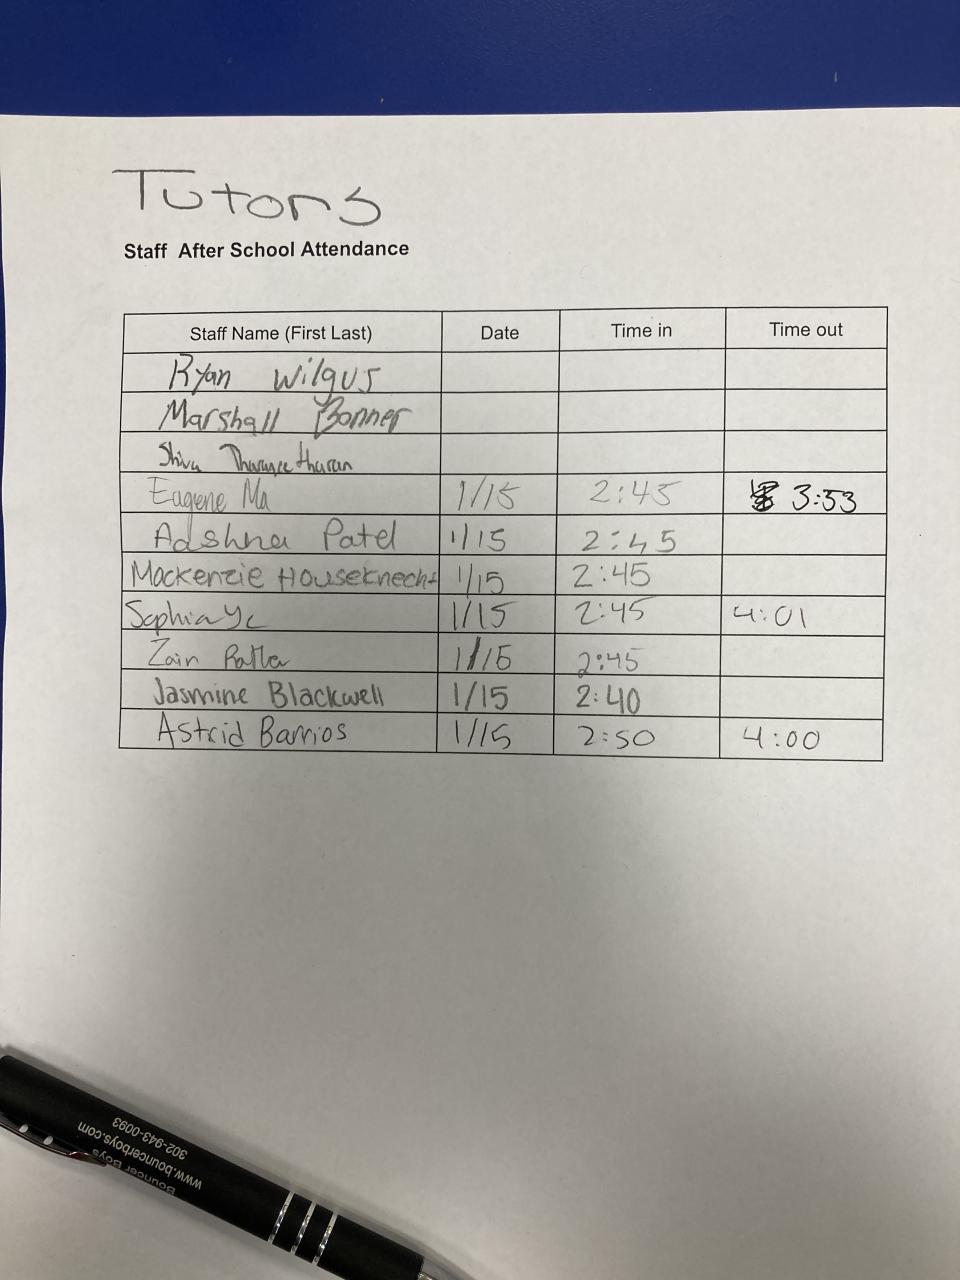 Tutors
Staff After School Attendance
Staff Name (First Last) Date Time in Time out
Ryan Wilgus
Marshall Bonner
Shiva
Eugene Ma 1/15 2:45 3:53
Adshna Patel 1/15 2:45
Mackenzie Houseknecht 1/15 2:45
Sophia Ye 1/15 2:45 4:01
Zain 1/15 2:45
Jasmine Blackwell 1/15 2:40
Astrid Barrios 1/15 2:50 4:00
Bouncer Boys
www.bouncerboys.com
302-943-0093